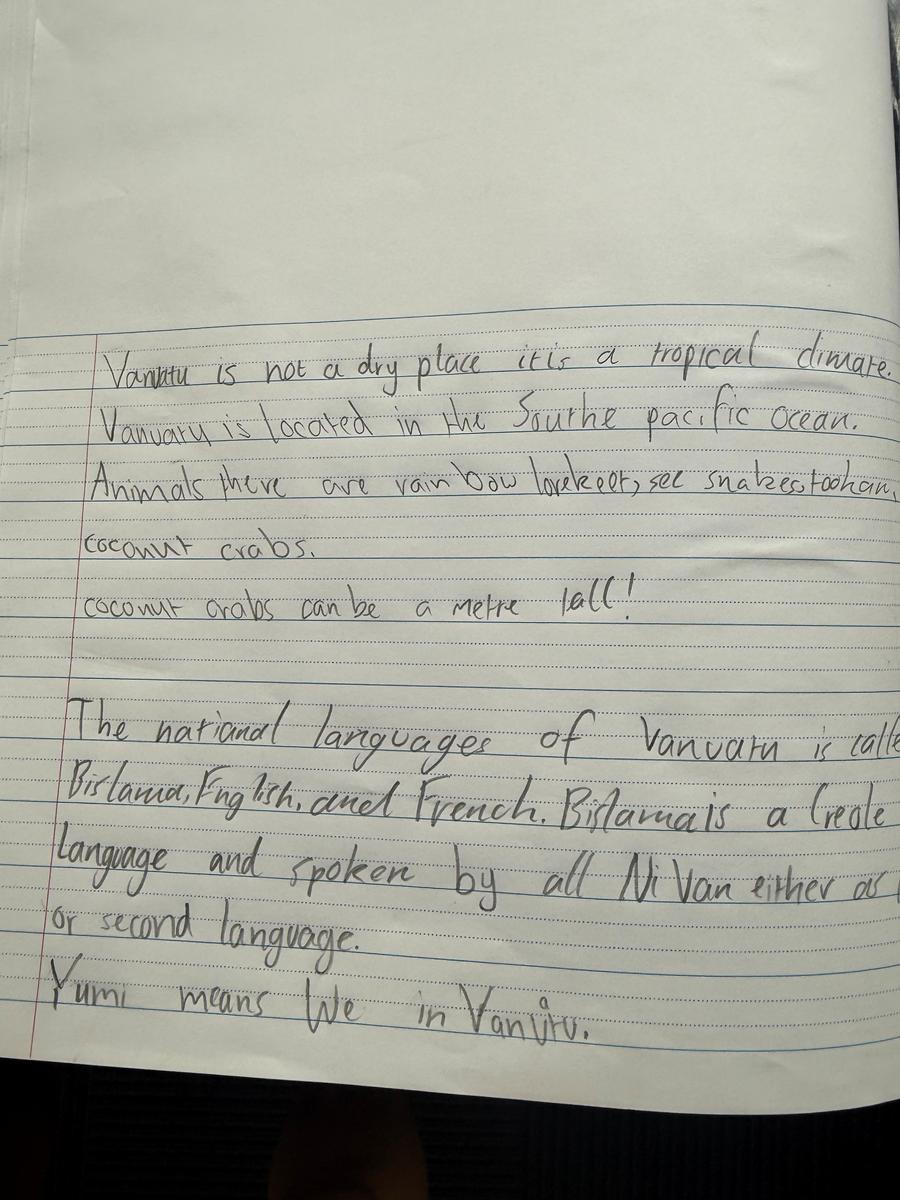 Vanutu is not a dry place it is a tropical climate.
Vanuatu is located in the Southe pacific ocean.
Animals there are rainbow lorekeet, see snakes, tookan,
coconut crabs.
coconut crabs can be a metre tall!
The national languages of Vanuatu is calle
Bislama, English, and French. Bislama is a Creole
language and spoken by all Ni Van either as
or second language.
Yumi means We in Vanuatu.